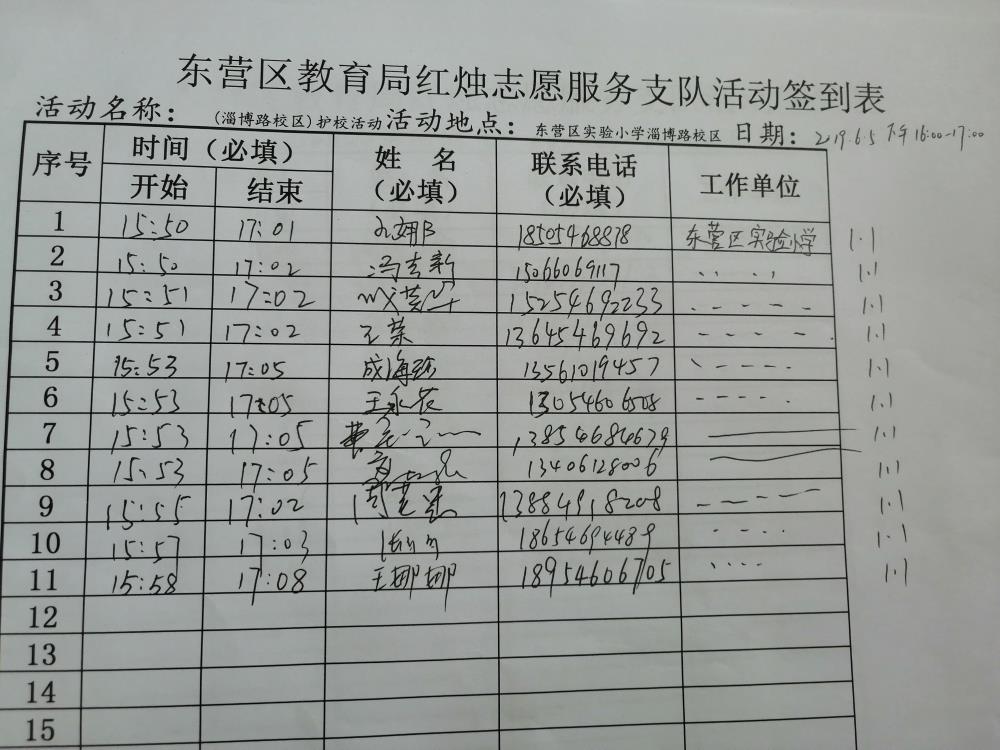 东营区教育局红烛志愿服务支队活动签到表
活动名称：(淄博路校区)护校活动 活动地点：东营区实验小学淄博路校区 日期：2019.6.5 下午16:00-17:00
序号 时间（必填） 姓 名（必填） 联系电话（必填） 工作单位
开始 结束
1 15:50 17:01 18505468878 东营区实验小学 1.1
2 15:50 17:02 冯志新 15066069117 1.1
3 15:51 17:02 15254692233 1.1
4 15:51 17:02 王荣 13645469692 1.1
5 15:53 17:05 成海 13561019457 1.1
6 15:53 17:05 王永 13054606508 1.1
7 15:53 17:05 13854684679 1.1
8 15:53 17:05 13406128006 1.1
9 15:55 17:02 13884918208 1.1
10 15:57 17:03 18654694489 1.1
11 15:58 17:08 王娜娜 18954606705 1.1
12
13
14
15